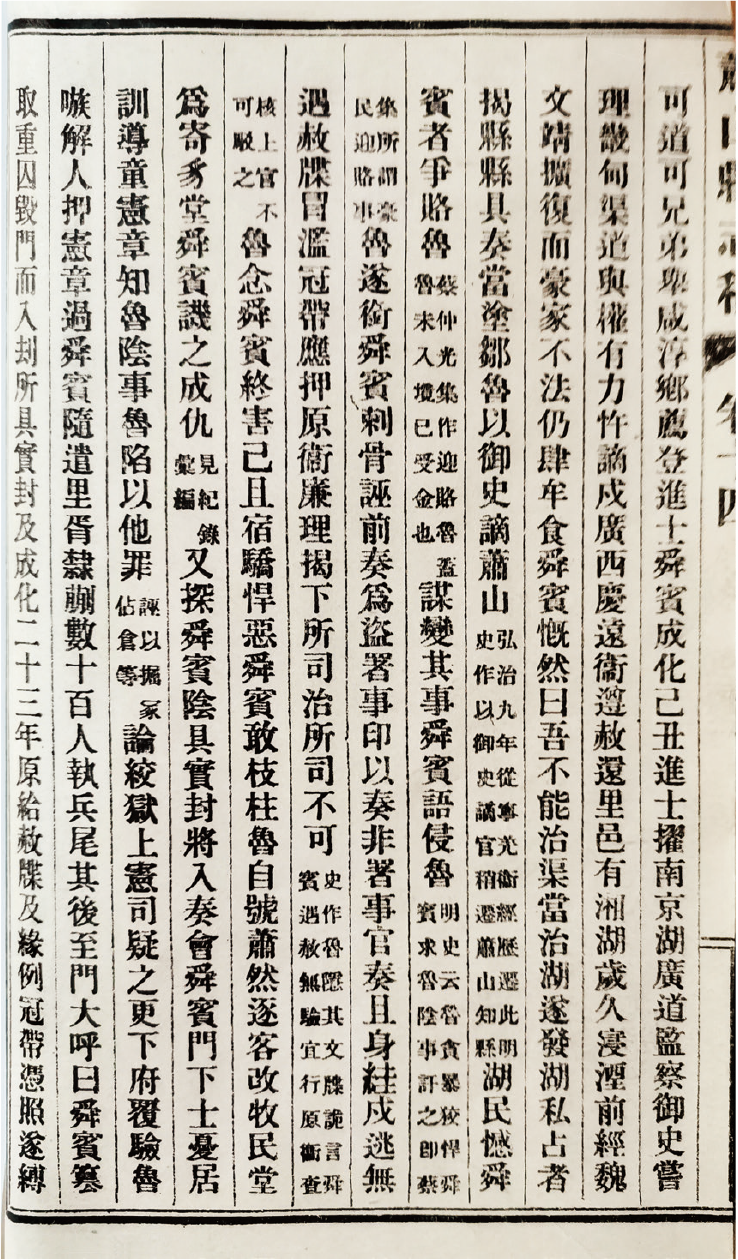 蕭山縣志稿 卷十四
可道可兄弟舉咸淳鄉薦登進士舜賓成化己丑進士擢南京湖廣道監察御史嘗
理畿甸渠道與權有力忤謫戍廣西慶遠衞遵赦還里邑有湘湖歲久寖湮前經魏
文靖擴復而豪家不法仍肆牟食舜賓慨然曰吾不能治渠當治湖遂發湖私占者
揭縣縣具奏當塗鄒魯以御史謫蕭山弘治九年從寧光衞經歷遷此明史作以御史謫官稍遷蕭山知縣湖民憾舜
賓者爭賂魯蔡仲光集作迎賂魯蓋魯未入境已受金也謀變其事舜賓語侵魯明史云魯貪暴狡悍舜賓求魯陰事訐之卽蔡
集所謂豪民迎賂事魯遂銜舜賓刺骨誣前奏爲盜署事印以奏非署事官奏且身絓戍逃無
遇赦牒冒濫冠帶應押原衞廉理揭下所司治所司不可史作魯隱其文牒詭言舜賓遇赦無驗宜行原衞查
核上官不可駁之魯念舜賓終害己且宿驕悍惡舜賓敢枝柱魯自號蕭然逐客改牧民堂
爲寄豸堂舜賓譏之成仇見紀錄彙編又探舜賓陰具實封將入奏會舜賓門下士憂居
訓導童憲章知魯陰事魯陷以他罪誣以掘冢佔倉等論絞獄上憲司疑之更下府覆驗魯
嗾解人押憲章過舜賓隨遣里胥隸蒯數十百人執兵尾其後至門大呼曰舜賓篡
取重囚毀門而入刦所具實封及成化二十三年原給赦牒及緣例冠帶憑照遂縛